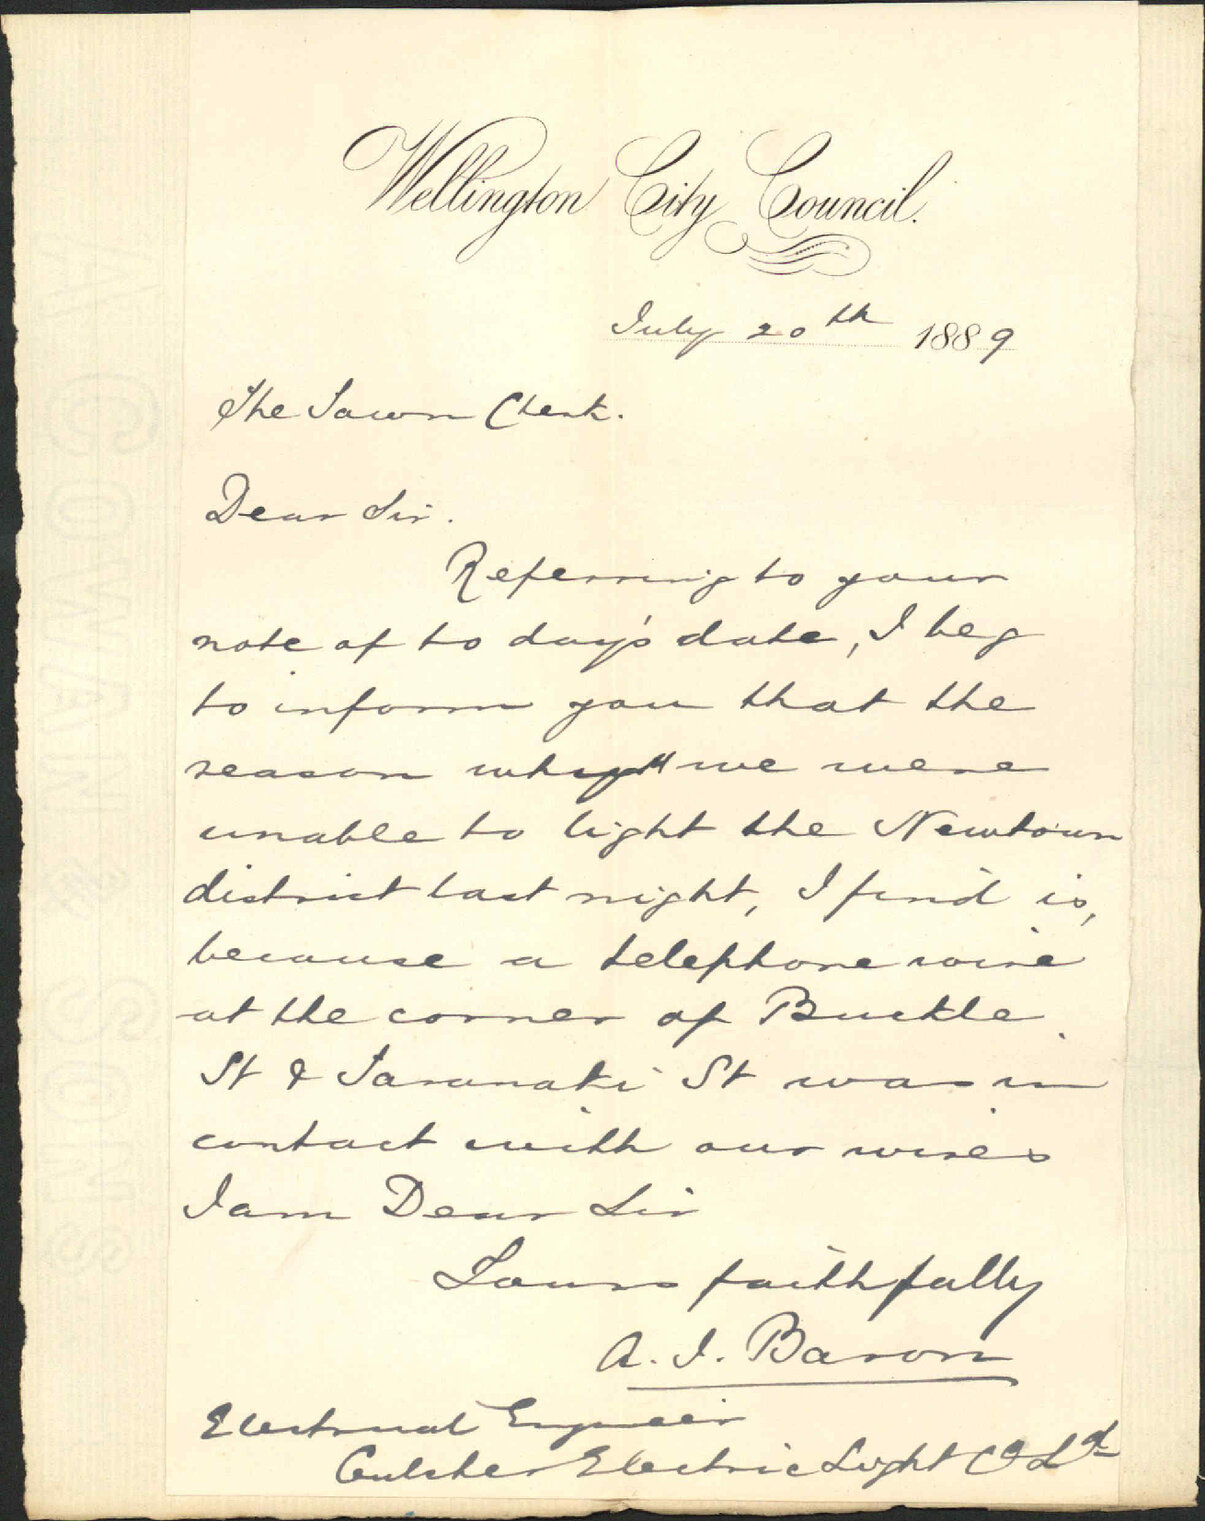 Wellington City Council.
July 20th 1889
The Town Clerk.
Dear Sir.
Referring to your
note of to day's date, I beg
to inform you that the
reason why we were
unable to light the Newtown
district last night, I find is,
because a telephone wire
at the corner of Buckle
St & Taranaki St was in
contact with our wires
I am Dear Sir
Yours faithfully
A. J. Baron
Electrical Engineer
Gulcher Electric Light Co Ltd